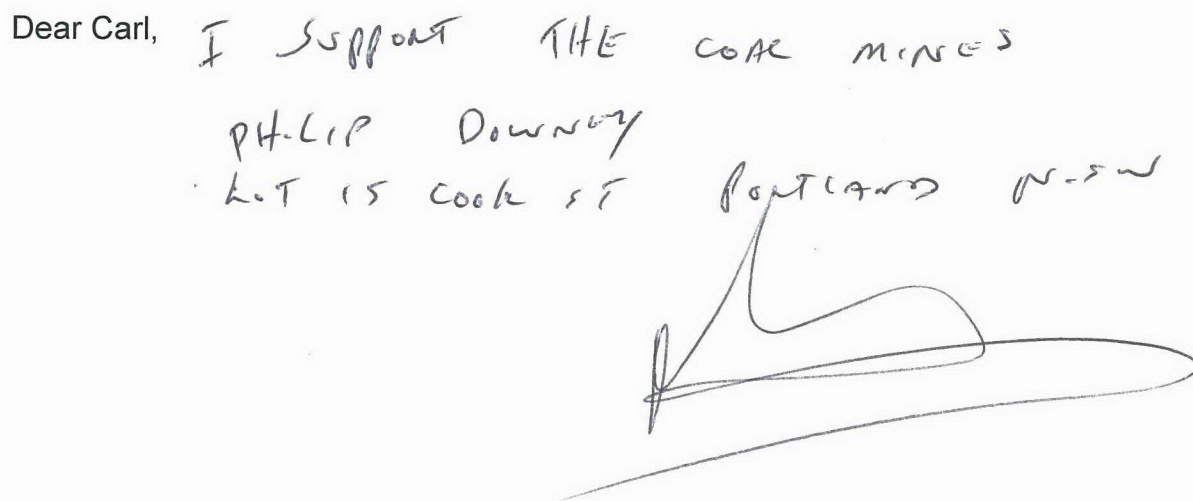 Dear Carl, I SUPPORT THE COAL MINES
PHILIP DOWNEY
LOT 15 COOK ST PORTLAND N.SW